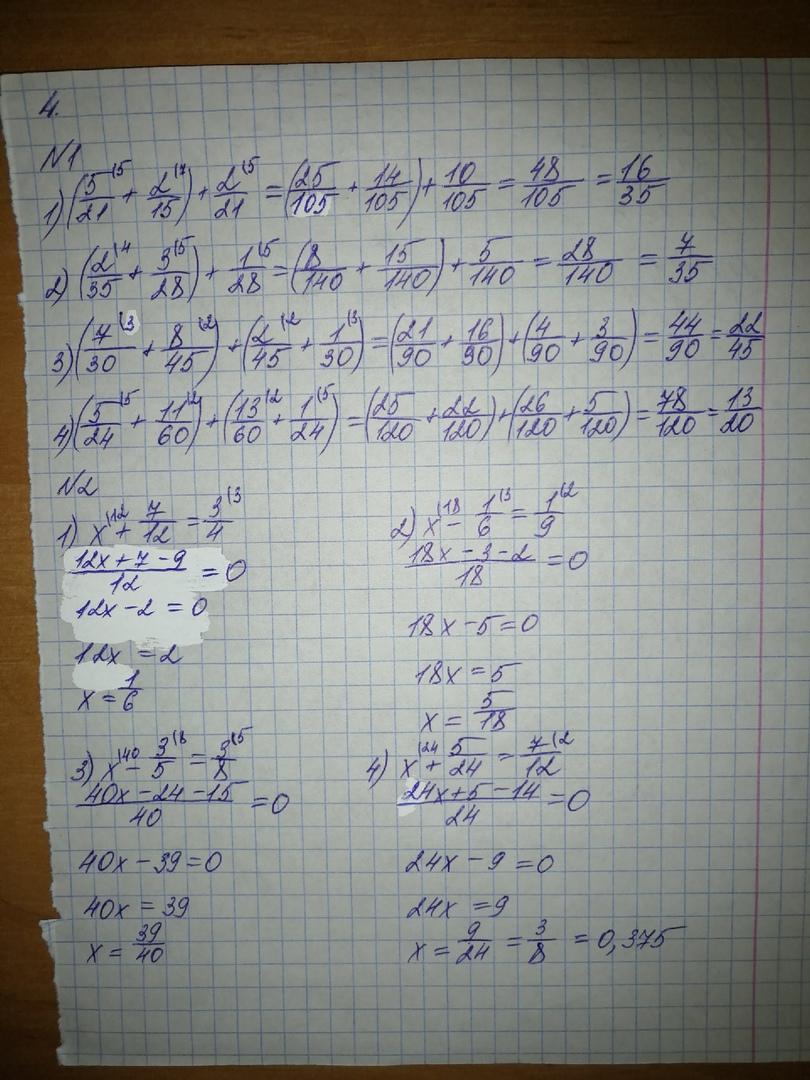 4.
N1
1) (5/21 (5 + 2/15 (7) + 2/21 (5 = (25/105 + 14/105) + 10/105 = 48/105 = 16/35
2) (2/35 (4 + 3/28 (5) + 1/28 (5 = (8/140 + 15/140) + 5/140 = 28/140 = 7/35
3) (7/30 (3 + 8/45 (2) + (2/45 (2 + 1/30 (3) = (21/90 + 16/90) + (4/90 + 3/90) = 44/90 = 22/45
4) (5/24 (5 + 11/60 (2) + (13/60 (2 + 1/24 (5) = (25/120 + 22/120) + (26/120 + 5/120) = 78/120 = 13/20
N2
1) x (12 + 7/12 = 3/4 (3
(12x + 7 - 9)/12 = 0
12x - 2 = 0
12x = 2
x = 1/6
2) x (18 - 1/6 (3 = 1/9 (2
(18x - 3 - 2)/18 = 0
18x - 5 = 0
18x = 5
x = 5/18
3) x (40 - 3/5 (8 = 3/8 (5
(40x - 24 - 15)/40 = 0
40x - 39 = 0
40x = 39
x = 39/40
4) x (24 + 5/24 = 7/12 (2
(24x + 5 - 14)/24 = 0
24x - 9 = 0
24x = 9
x = 9/24 = 3/8 = 0,375